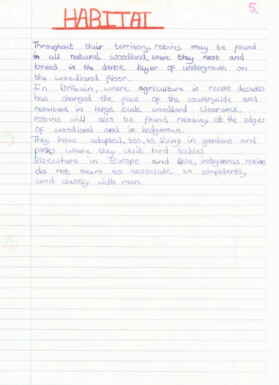 5
HABITAT
Throughout their territory, robins may be found
in all natural woodland, where they nest and
breed in the dense layer of undergrowth on
the woodland floor.
In Britain, where agriculture in recent decades
has changed the face of the countryside and
resulted in large scale woodland clearance,
robins will also be found nesting at the edges
of woodland and in hedgerows.
They have adapted, too, to living in gardens and
parks where they visit bird tables.
Elsewhere in Europe and Asia, indigenous robins
do not seem to associate so
and closely with man.